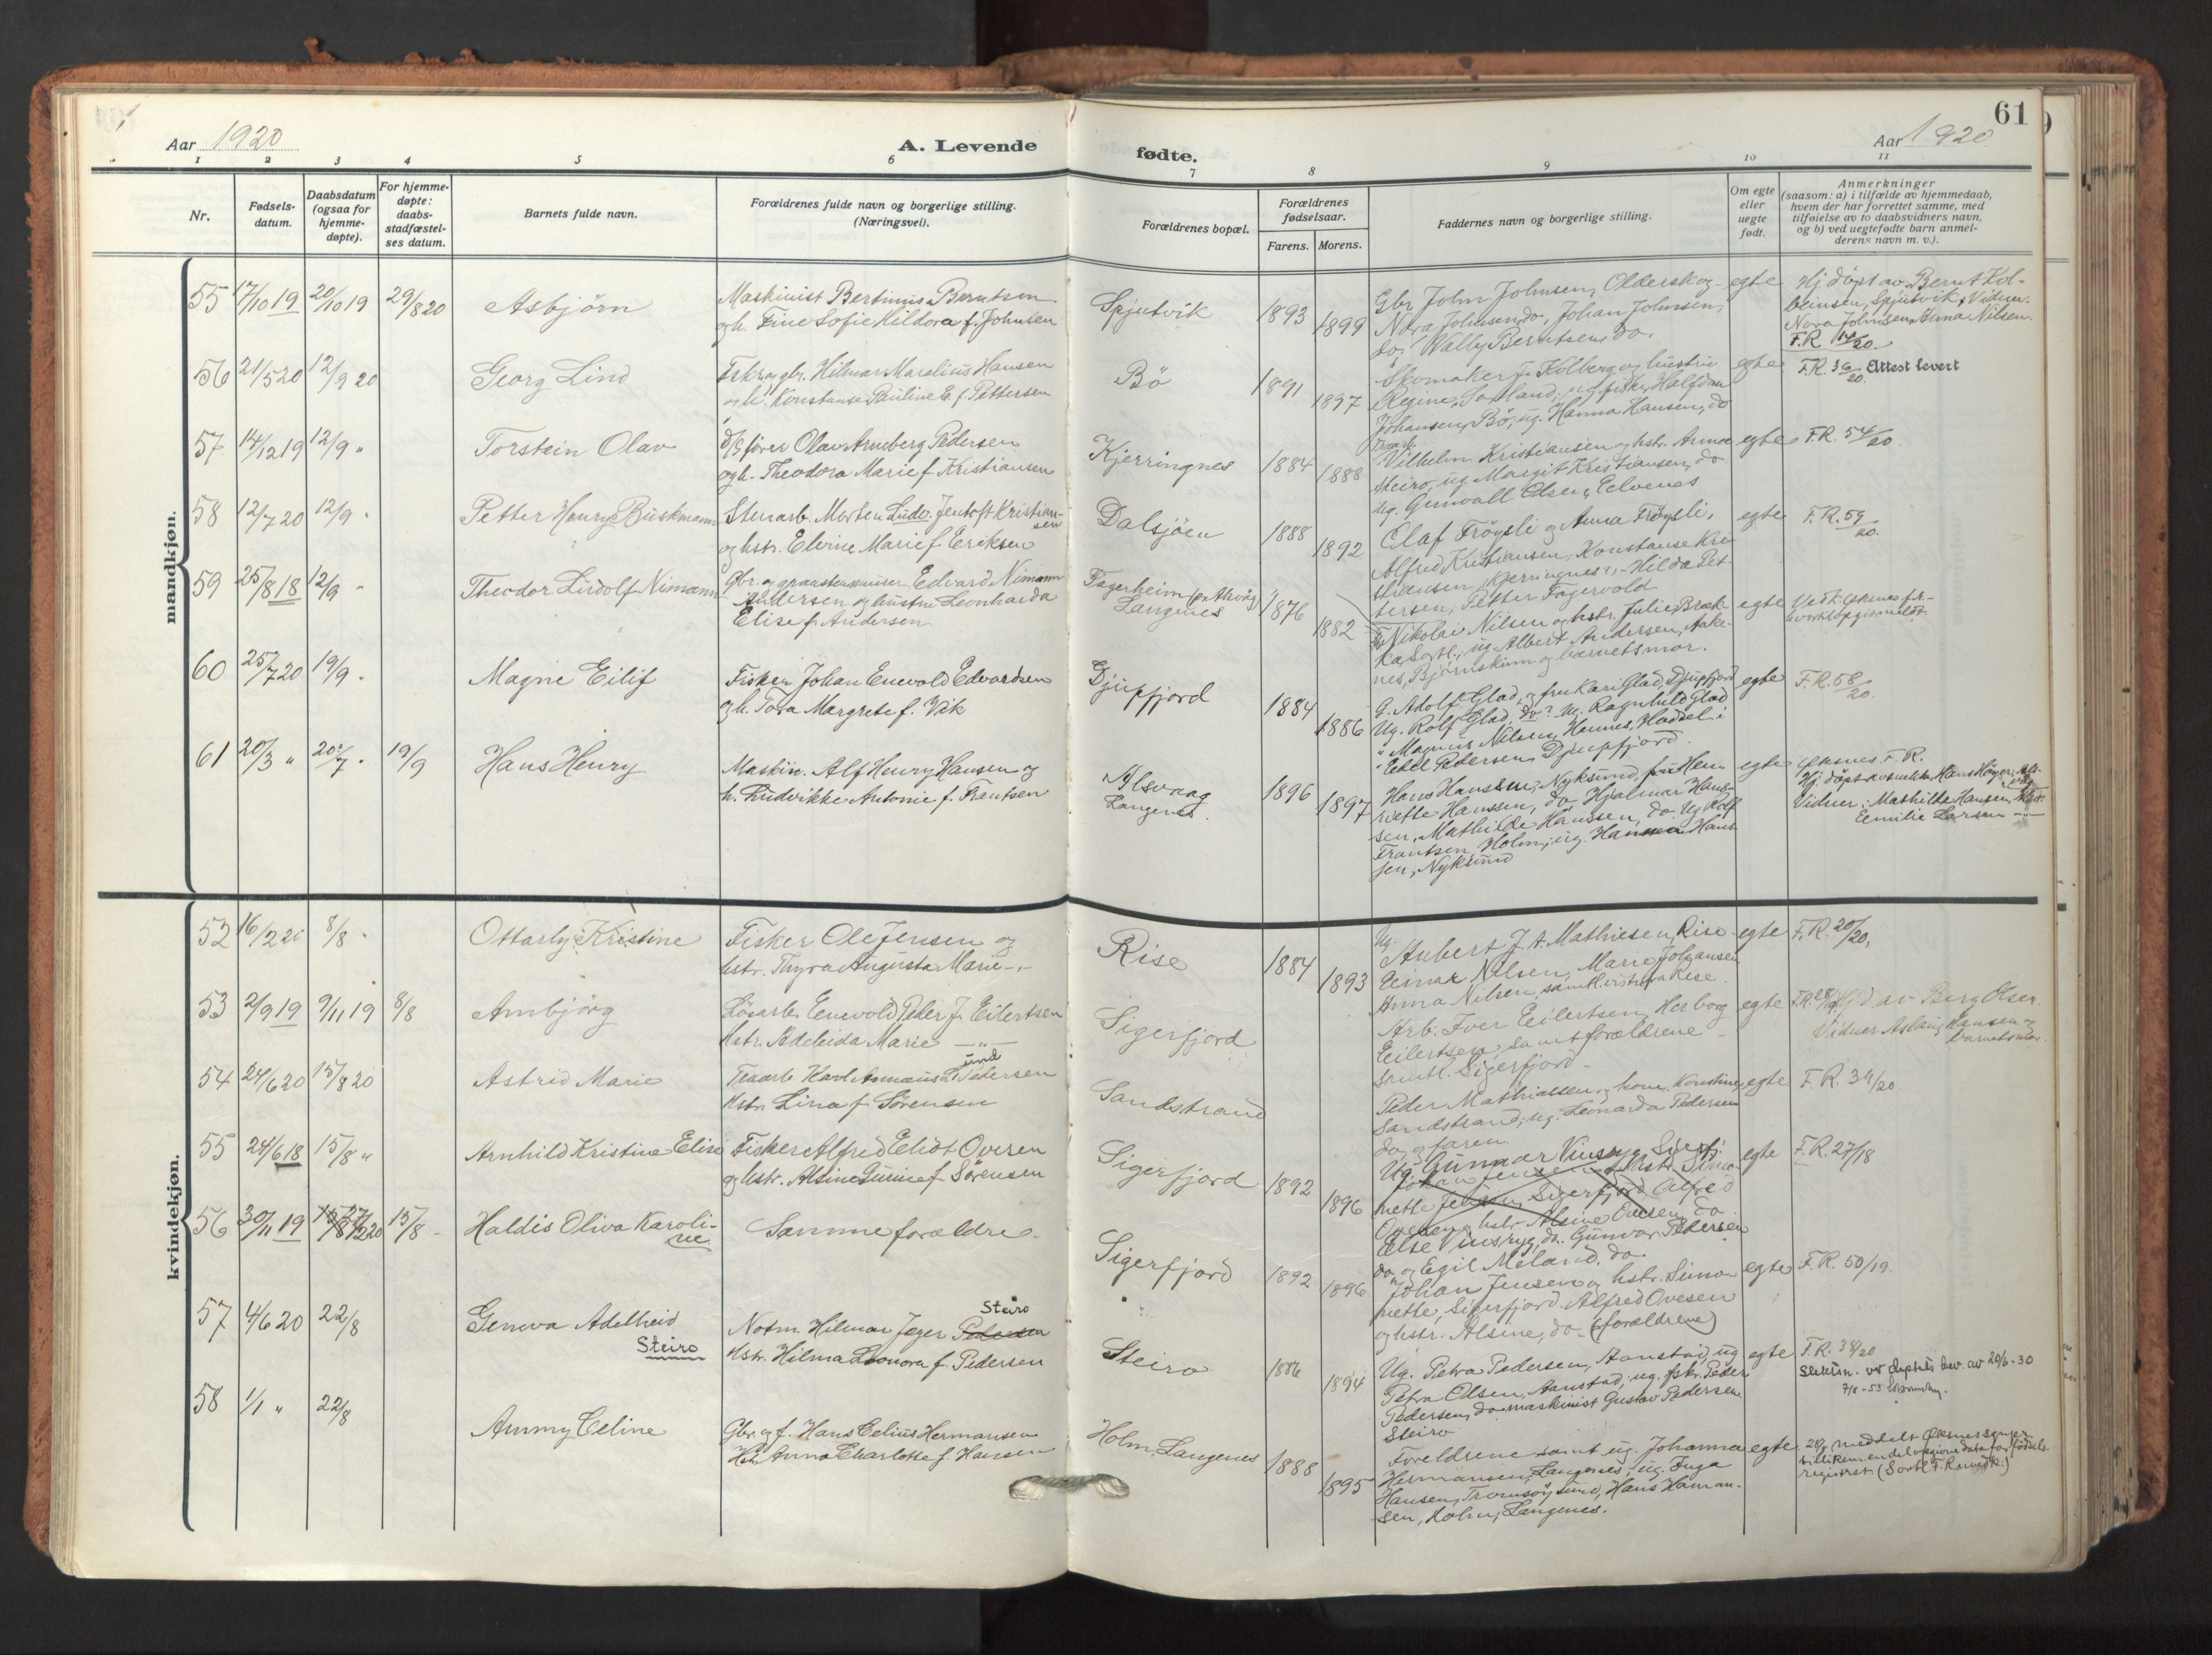 Aar 1920
A. Levende
1 2 3 4 5 6
Nr.
Fødsels-
datum.
Daabsdatum
(ogsaa for
hjemme-
døpte).
For hjemme-
døpte:
daabs-
stadfæstel-
ses datum.
Barnets fulde navn.
Forældrenes fulde navn og borgerlige stilling.
(Næringsvei).
61
fødte.
Aar 1920
7 8 9 10 11
Forældrenes bopæl.
Forældrenes
fødselsaar.
Farens. Morens.
Faddernes navn og borgerlige stilling.
Om egte
eller
uegte
født.
Anmerkninger
(saasom: a) i tilfælde av hjemmedaab,
hvem der har forrettet samme, med
tilføielse av to daabsvidners navn,
og b) ved uegtefødte barn anmel-
derens navn m. v.).
mandkjøn.
55 17/10 19 20/10 19 29/8 20 Asbjörn
Maskinist Bertinus Berntsen
og h. Fine Sofie Hildora f. Johnsen
Spjutvik 1893 1899
Gbr John Johnsen, Olderskog
Nora Johnsen, do, Johan Johnsen,
do, Wally Berntsen, do.
egte
Hj döpt av Bernt Kol-
beinsen, Spjutvik, Vidner:
Nora Johnsen, Anna Nilsen.
F.R. 14/20.
56 21/5 20 12/9 20 Georg Lind
Fskr. og gbr. Hilmar Marelius Hansen
og h. Konstanse Pauline E. f. Pettersen
Bö 1891 1897
Skomaker J. Kolberg og hustru
Regine, Sortland, ug. fisker Halfdan
Johansen, Bö, ug. Hanna Hansen, do
egte
F.R. 36/20. Attest levert
57 14/12 19 12/9 " Torstein Olav
D/S fører Olav Arneberg Pedersen
og h. Theodora Marie f Kristiansen
Kjerringnes 1884 1888
Vilhelm Kristiansen og hstr. Anna
Steiro, ug Margit Kristiansen, do
ug. Gunvall Olsen, Selvenes
egte F.R. 54/20.
58 12/7 20 12/9 " Petter Henry Buskmann
Stenarb. Morten Ludv. Jentoft Kristian-
sen
og hstr. Elvine Marie f Eriksen
Dalsjöen 1888 1892
Olaf Fröysli og Anna Fröysli,
Alfred Kristiansen, Konstanse Kri-
stiansen, Kjerringnes, Hilda Pet-
tersen, Petter Fagervold
egte F.R. 59/20.
59 25/8 18 12/9 " Theodor Ludolf Nimann
Gbr. og Edvard Nimann
Andersen og hustru Leonharda
Elise f. Andersen
Fagerheim
Langenes 1876 1882
Nikolai Nilsen og hstr. Julie, Bræk-
ka, Sortl., ug. Albert Andersen, Aake-
nes, Bjørnskinn og barnets mor.
egte
60 25/7 20 19/9 " Magne Eilif
Fisker Johan Enevold Edvardsen
og h. Tora Margrete f. Vik
Djupfjord 1884 1886
G. Adolf Glad, og fru Kari Glad, Djupfjord
Ug. Rolf Glad, do? ug. Ragnhild Glad
" Magnus Nilsen, Hennes, Hadsel i
Edel Pedersen, Djupfjord.
egte F.R. 58/20.
61 20/3 " 20/7 " 19/9 Hans Henry
Maskin. Alf Henry Hansen og
h. Ludvikke Antonie f. Frantsen
Alsvaag
Langenes. 1896 1897
Hans Hanssen, Nyksund, fru Hen-
riette Hanssen, do, Hjalmar Hans-
sen, Mathilde Hanssen, do. Ug Rolf
Frantsen, Holm, ug. Hanna Hans-
sen, Nyksund
egte
Øksnes. F.R.
Vidner: Mathilde Hansen,
Emilie Larsen
kvindekjøn.
52 16/2 20 8/8 " Ottarly Kristine
Fisker Ole Jensen og
hstr. Thyra Augusta Marie —"—
Rise 1884 1893
Ug. Anbert J. A. Mathiesen, Rise
Einar Nilsen, Marie Johansen
Anna Nilsen, samtl. Rise.
egte F.R. 20/20.
53 2/9 19 9/11 19 8/8 Arnbjörg
Lösarb. Enevold Peder J. Eilertsen
hstr. Adeleida Marie —"—
Sigerfjord
Arb. Iver Eilertsen, Herborg
Eilertsen, samt forældrene
samtl. Sigerfjord
egte
av Berg Olsen.
Vidner Aslaug Hansen og
barnets mor.
54 24/6 20 15/8 20 Astrid Marie
Karl Annæus Lund Pedersen
hstr. Lina f. Sörensen
Sandstrand
Peder Mathiassen, og kone Konstine
Sandstrand, ug. Leonarda Pedersen
do, og faren
egte F.R. 34/20
55 24/6 18 15/8 " Arnhild Kristine Elise
Fisker Alfred Eliot Ovesen
og hstr. Alsine Gurine f. Sörensen
Sigerfjord 1892 1896
Ug. Gunnar Vinsryg, Sigerfj.
Johan Jensen og hstr. Simo-
nette Jensen, Sigerfjord, Alfred
Ovesen og hstr. Alsine Ovesen, do
Else Vinsryg, do. Gunvor Pedersen
do, og Egil Meland, do
egte F.R. 27/18
56 30/11 19 15/8 Haldis Oliva Karoli-
ne
Samme forældre.
Sigerfjord 1892 1896
Johan Jensen og hstr. Simo-
nette, Sigerfjord. Alfred Ovesen
og hstr. Alsine, do. (forældrene)
egte F.R. 50/19.
57 4/6 20 22/8 Geneva Adelheid
Steiro
Notm. Hilmar Jeger Pedersen Steiro
hstr. Hilma Leonora f. Pedersen
Steiro 1886 1894
Ug. Petra Pedersen, Aanstad, ug
Petra Olsen, Aanstad, ug. fskr. Peder
Pedersen, do maskinist Gustav Pedersen
Steiro
egte F.R. 38/20
Slektsn. ved Deptets bev. av 20/6-30
58 1/1 " 22/8 Ammy Celine
Gbr. og f. Hans Celius Hermansen
Hst. Anna Charlotte f. Hansen
Holm, Langenes 1888 1895
Foreldrene samt ug. Johanna
Hermansen, Langenes, ug. Inga
Hansen, Tromsöysund, Hans Haman-
sen, Holm, Langenes.
egte
28/8 meddelt Øksnes
registret. (Sortl. F.R. )